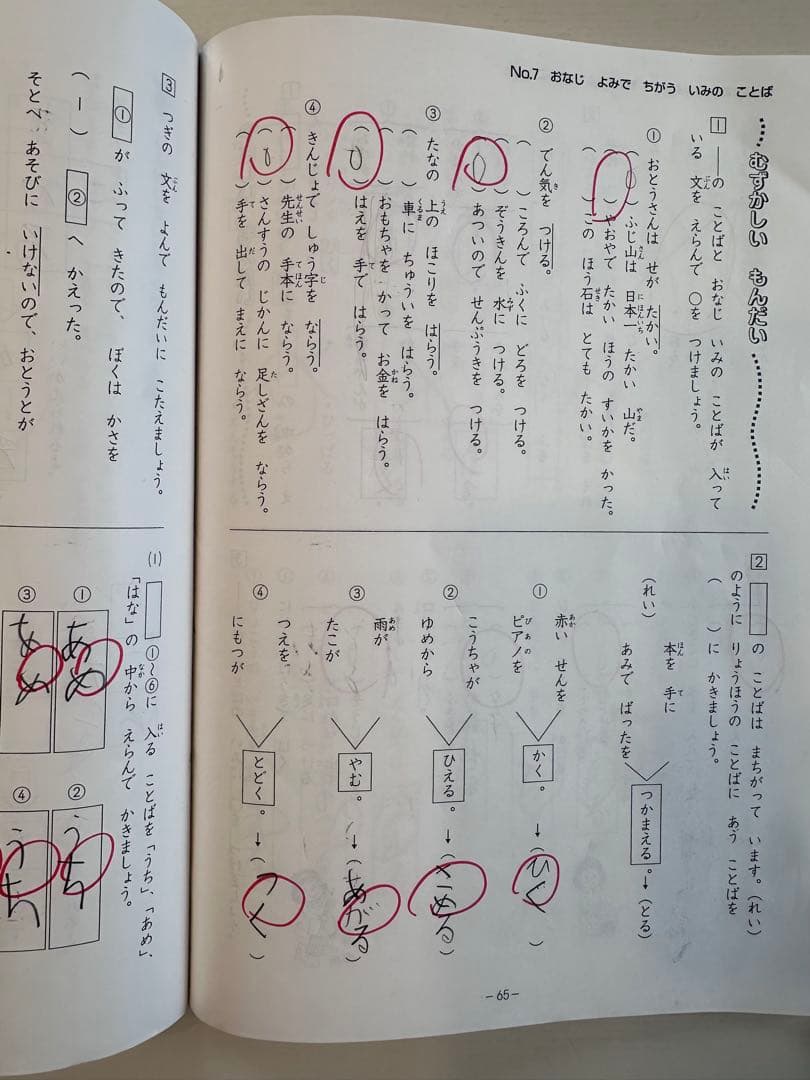 No.7 おなじ よみで ちがう いみの ことば
むずかしい もんだい
1 ――の ことばと おなじ いみの ことばが 入って
いる 文を えらんで ○を つけましょう。
① おとうさんは せが たかい。
(○) ふじ山は 日本一 たかい 山だ。
( ) やおやで たかい ほうの すいかを かった。
( ) この ほう石は とても たかい。
② でん気を つける。
( ) ころんで ふくに どろを つける。
( ) ぞうきんを 水に つける。
(○) あついので せんぷうきを つける。
③ たなの 上の ほこりを はらう。
( ) 車に ちゅういを はらう。
( ) おもちゃを かって お金を はらう。
(○) はえを 手で はらう。
④ きんじょで しゅう字を ならう。
( ) 先生の 手本に ならう。
(○) さんすうの じかんに 足しざんを ならう。
( ) 手を 出して まえに ならう。
2 □の ことばは まちがって います。(れい)
のように りょうほうの ことばに あう ことばを
( )に かきましょう。
(れい) 本を 手に
あみで ばったを
つかまえる。→(とる)
① 赤い せんを
ピアノを
かく。→(ひく)
② こうちゃが
ゆめから
ひえる。→(さめる)
③ 雨が
たこが
やむ。→(あがる)
④ つえを
にもつが
とどく。→(つく)
-65-
3 つぎの 文を よんで もんだいに こたえましょう。
(一) ① が ふって きたので、ぼくは かさを
② へ かえった。
そとへ あそびに いけないので、おとうとが
(1) □①~⑥に 入る ことばを「うち」、「あめ」、
「はな」の 中から えらんで かきましょう。
① あめ
② うち
③ あめ
④ うち